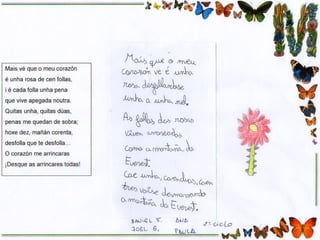 Mais vé que o meu corazón
é unha rosa de cen follas,
i é cada folla unha pena
que vive apegada noutra.
Quitas unha, quitas dúas,
penas me quedan de sobra;
hoxe dez, mañán corenta,
desfolla que te desfolla…
O corazón me arrincaras
¡Desque as arrincares todas!
Mais que o meu
corazón ve é unha
rosa desfollandose
unha a unha
As follas das rosas
viven amoreadas
como a montaña do
Everest.
Cae unha, caen dúas, caen
tres vaise desmoronando
a montaña do Everest.
DANIEL F.
JOEL G.
PAULA
2º CICLO